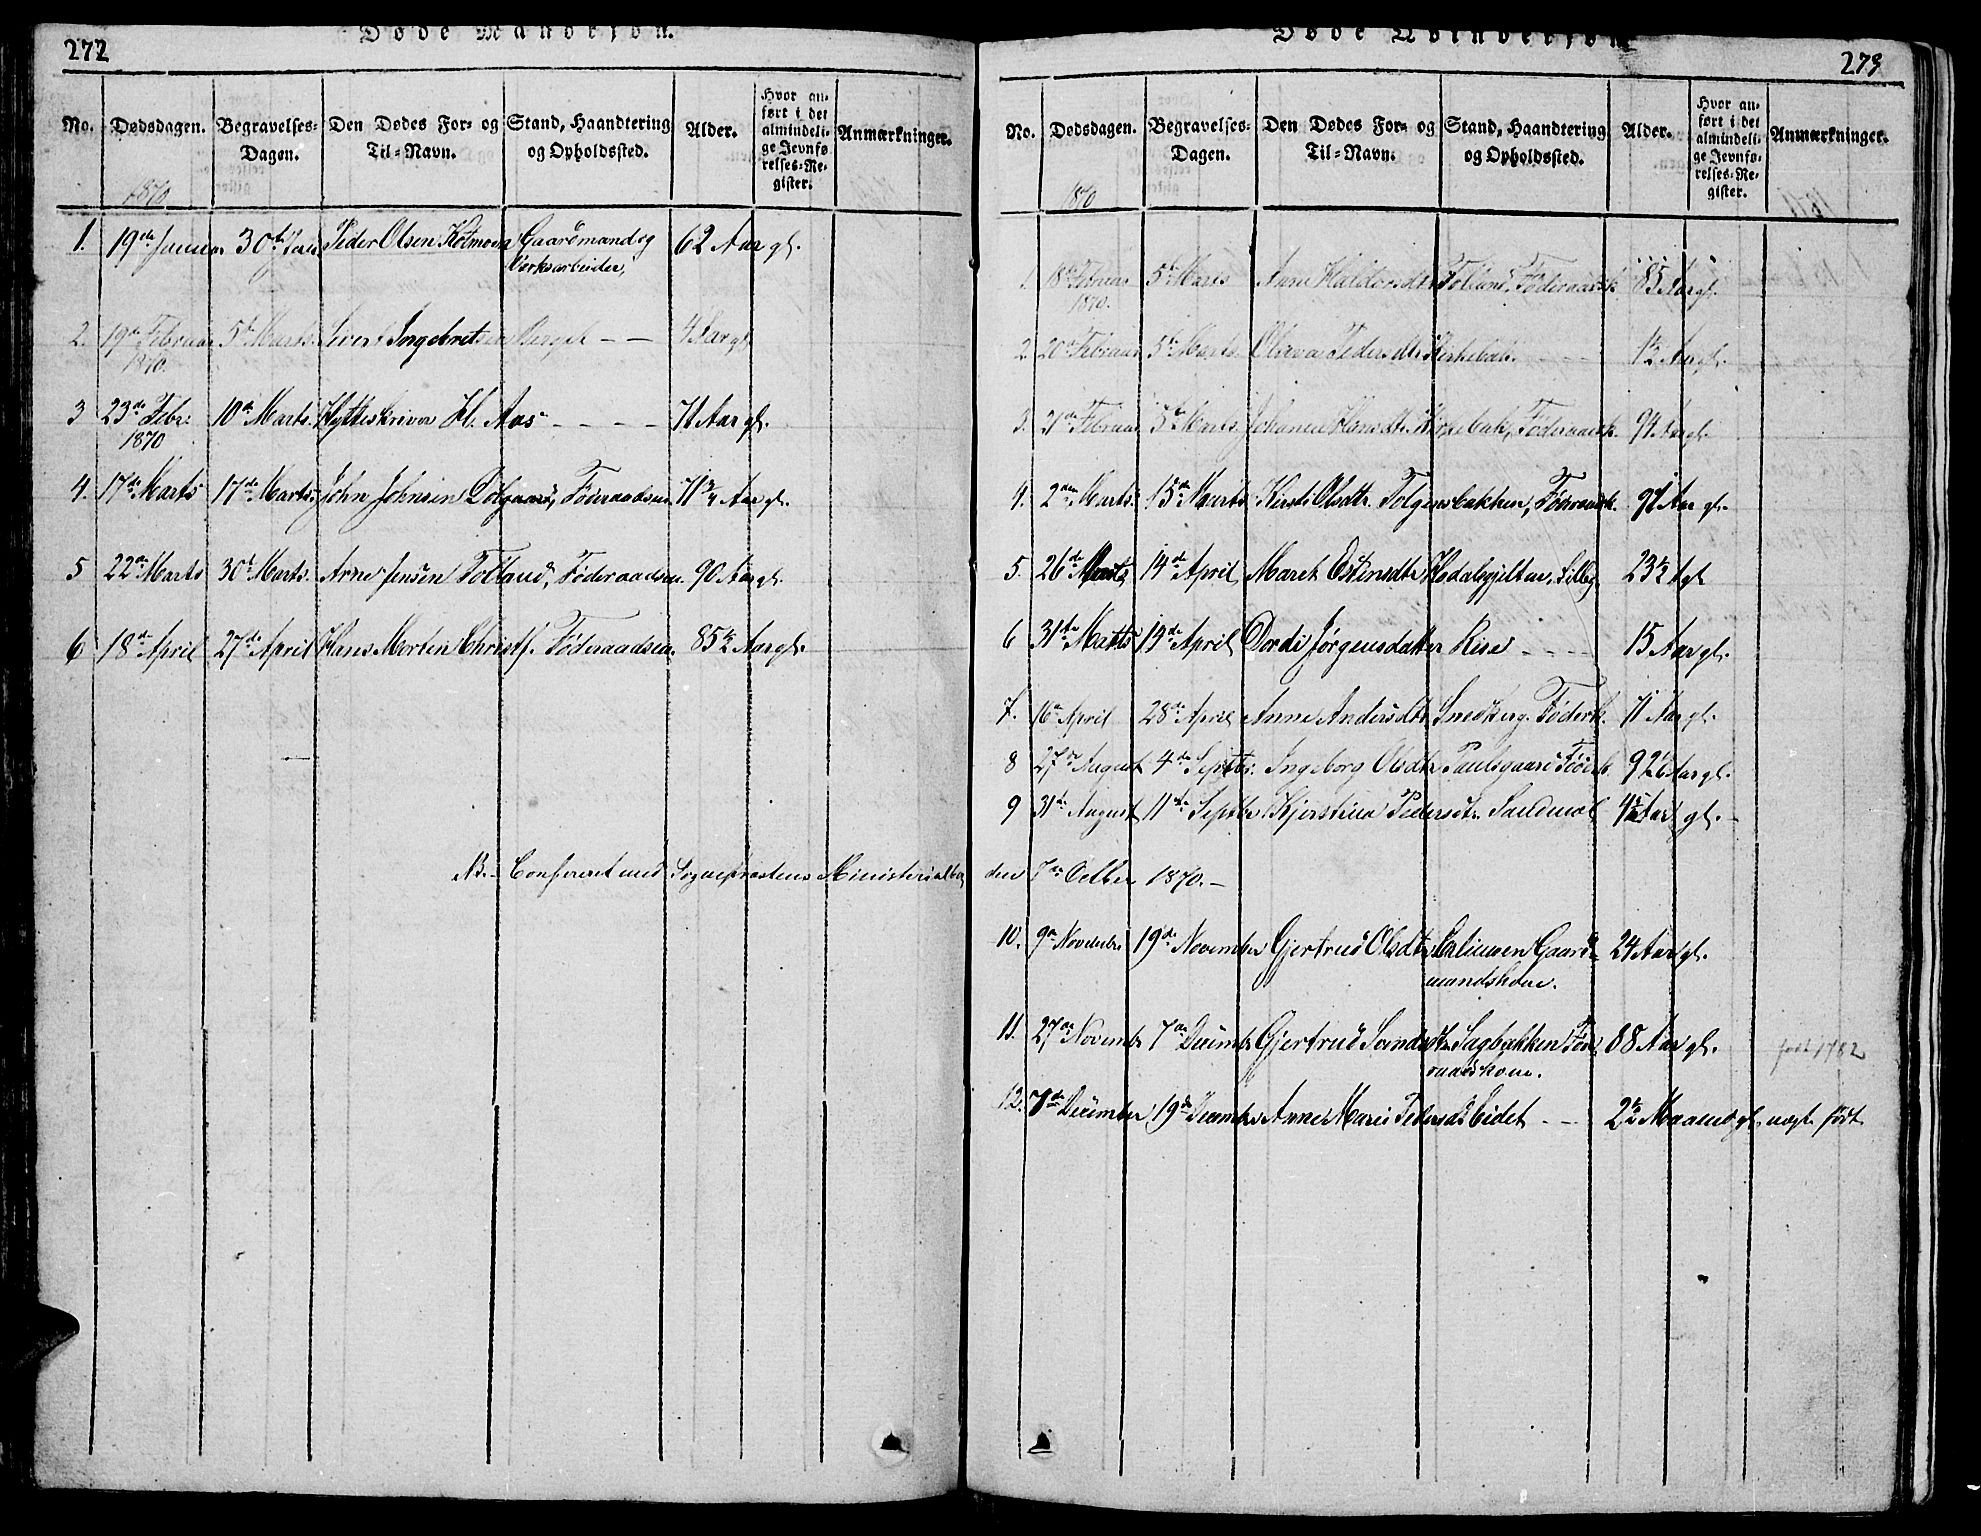 272
Døde Mandkjøn.
No. Dødsdagen. Begravelses-Dagen. Den Dødes For- og Til-Navn. Stand, Haandtering og Opholdsted. Alder. Hvor anført i det almindelige Jevnførelses-Register. Anmærkninger.
1870
1. 19de Januar 30te Jan. Peder Olsen Gaardmand og 62 Aar gl.
Verksarbeider,
2. 19de Februar 5te Marts Sivert Ingebretsen — — 4 Aar gl.
1870.
3 23de Febr. 10de Marts. Hytteskriver Hl. Aas - - - - 71 Aar gl.
1870
4. 17de Marts 17de Marts John Johnsen Føderaadsm. 71 3/4 Aar gl.
5 22de Marts 30te Marts. Arne Jensen Tolland, Føderaadsm. 90 Aar gl.
6 18de April 27de April Hans Morten Christs. Føderaadsm. 85 1/2 Aar gl.
NB. - Confereret med Sogneprestens Ministerialbog den 7de Octbr 1870. –
273
Døde Qvindekjøn
No. Dødsdagen. Begravelses-Dagen. Den Dødes For- og Til-Navn. Stand, Haandtering og Opholdssted. Alder. Hvor anført i det almindelige Jevnførelses-Register. Anmærkninger.
1870
1. 18de Februar 5te Marts Haldorsdtr Tolland, Føderaadsk. 85 Aar gl.
1870.
2. 20de Februar 5te Marts Pedersdtr Kirkebak. 1 1/2 Aar gl.
3. 21de Februar 5te Marts Johanna Hansdtr. Kirkebak, Føderaadsk. Aar gl.
4. 2den Marts. 15de Marts Kirsti Olsdtr. Tolgensbakken, Aar gl.
5. 26de Marts 14de April Maret Østensdtr 23 1/2 A gl
6 31te Marts 14de April Dordi Jørgensdatter Rise - - - - 15 Aar gl.
7. 16de April 28de April Anne Andersdtr Smedberg. Føderk. 71 Aar gl.
8 27de August 4de Septbr. Ingeborg Olsdtr Paulsgaard Aar gl.
9 31te August 11te Septbr. Kjerstina Pedersdtr. Aar gl. -
10. 9de Novembr 19de November Gjertrud Olsdtr Gaard- 24 Aar gl.
mandskone.
11. 27de Novembr 7de Decembr Gjertrud Sagbakken Føde 88 Aar gl. født 1782
raadskone.
12. 7de December 19de Decembr Anne Marie Pedersdtr Eidet - - 2 1/2 Maaned gl. uægte født